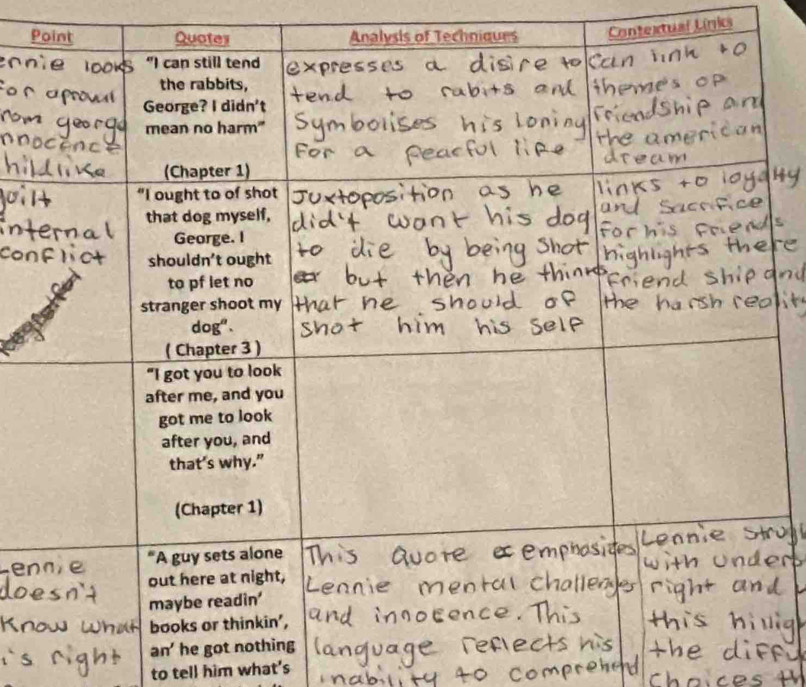 Point Quotes Analysis of Techniques Contextual Links
ennie looks "I can still tend expresses a disire to can link to
for aprouvl the rabbits, tend to rabits and themes of
rom georg George? I didn't Symbolises his loning friendship and
nnocence mean no harm" For a peacful life the american
hildlike (Chapter 1) dream
guilt "I ought to of shot Juxtoposition as he links to loyalty
internal that dog myself, did't want his dog and Sacrifice
conflict George. I to die by being shot for his friends
shouldn't ought but then he thinks highlights there
to pf let no that he should of friend ship and
stranger shoot my shot him his self the harsh reality
dog".
( Chapter 3 )
"I got you to look
after me, and you
got me to look
after you, and
that's why."
(Chapter 1)
Lennie "A guy sets alone This Quote emphasides Lennie strugl
doesn't out here at night, Lennie mental challenges with under
Know what maybe readin' and innocence. This right and
is right books or thinkin', language reflects his this
an' he got nothing inability to comprehend the diffi
to tell him what's choices th